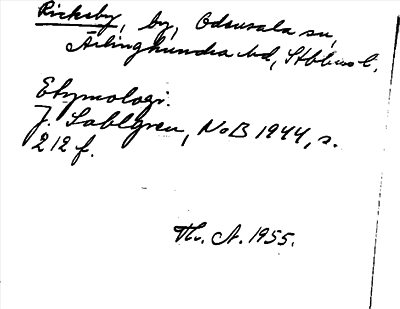 Ricksby, by, Odensala sn,
Ärlinghundra hd, Sthlms l.
Etymologi:
J. Sahlgren, NoB 1944, s.
212 f.
Th. A. 1955.